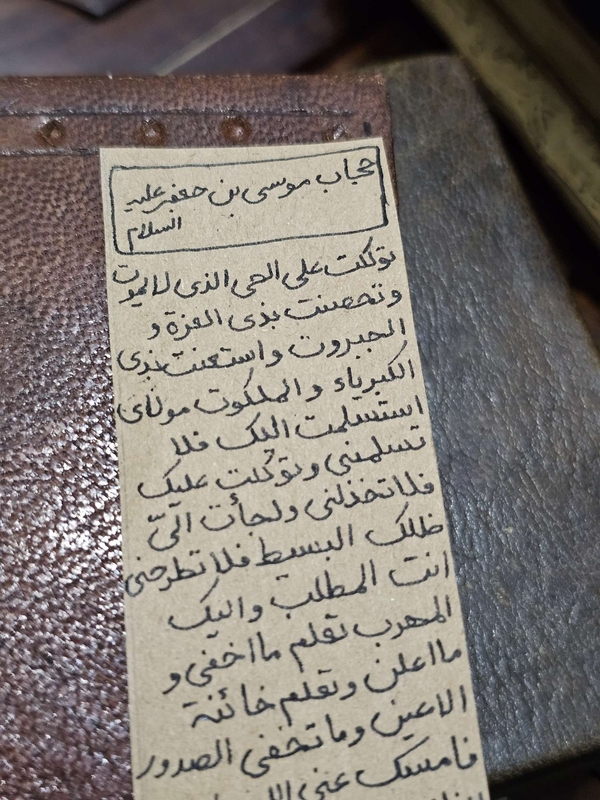 حجاب موسی بن جعفر علیه
السلام
توکلت علی الحی الذی لا یموت
و تحصنت بذی العزة و
الجبروت و استعنت بذی
الکبریاء و الملکوت مولای
استسلمت الیک فلا
تسلمنی و توکلت علیک
فلا تخذلنی و لجأت الیّ
ظلک البسط فلا تطرحنی
انت المطلب و الیک
المهرب تعلم ما اخفی و
ما اعلن و تعلم خائنة
الاعین و ما تخفی الصدور
فامسک عنی